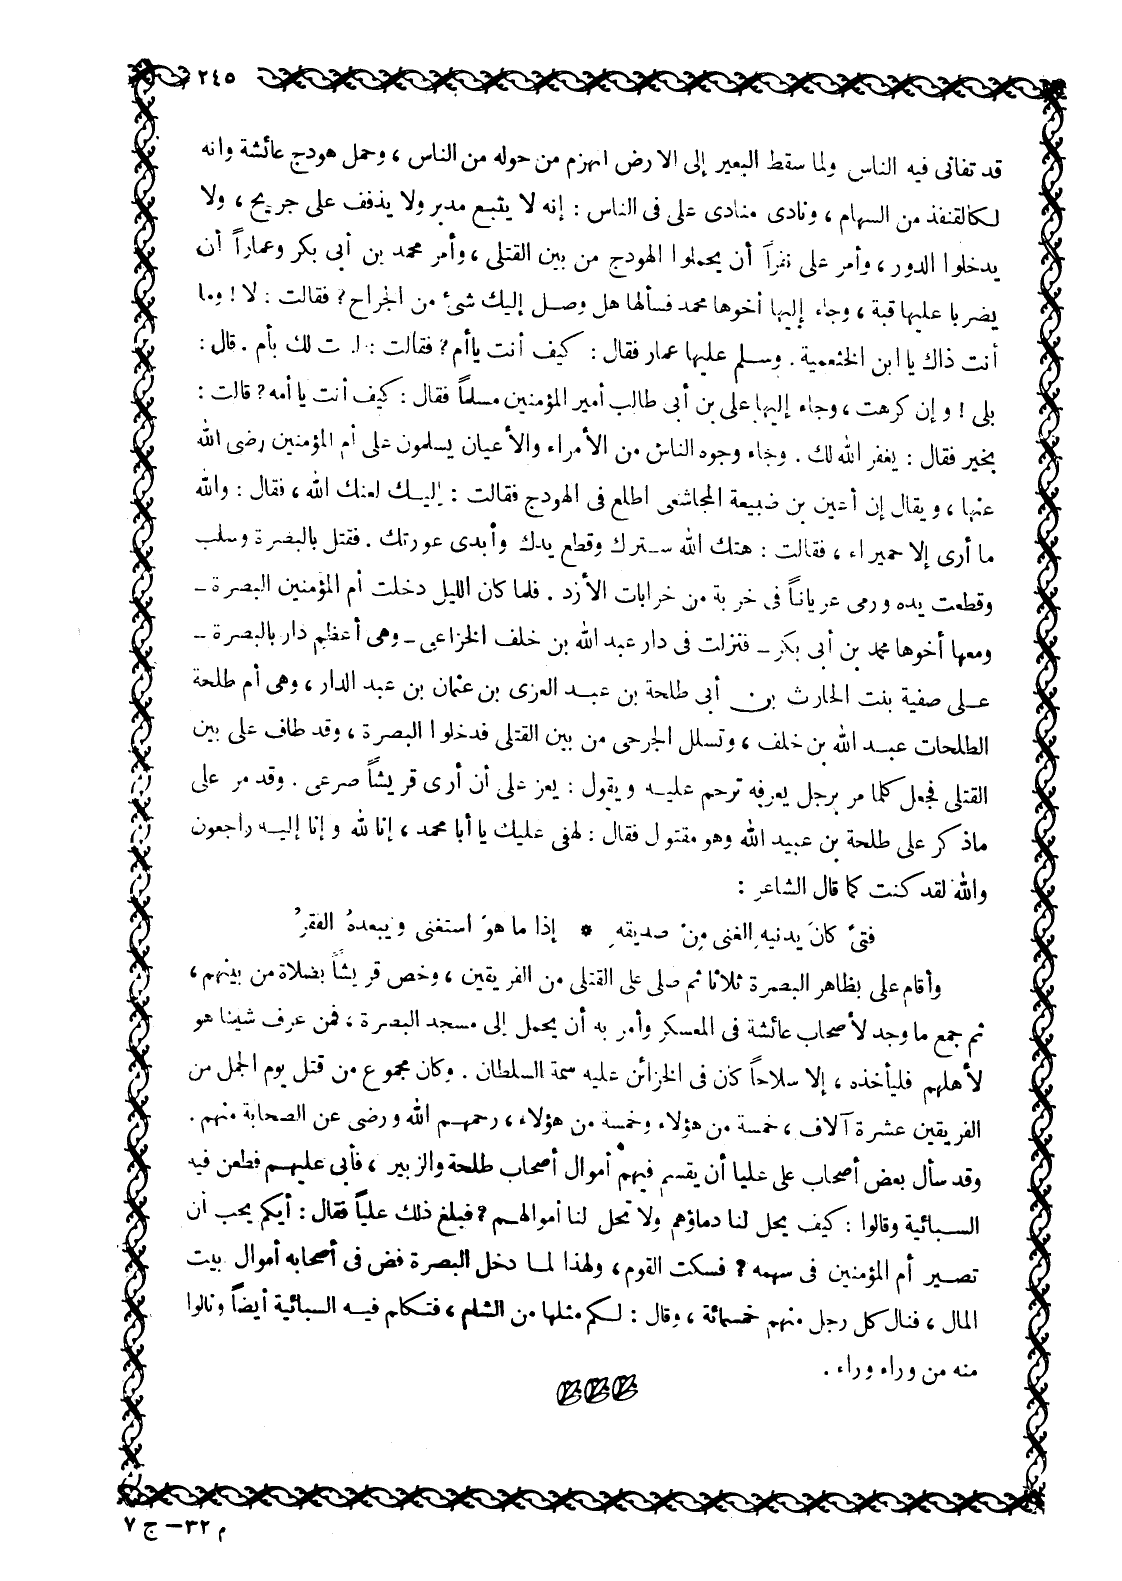 ٢٤٥
قد تفانى فيه الناس ولما سقط البعير إلى الارض انهزم من حوله من الناس ، وحمل هودج عائشة وانه
لكالقنفذ من السهام ، ونادى منادى على فى الناس : إنه لا يتبع مدبر ولا يذفف على جريح ، ولا
يدخلوا الدور ، وأمر على نفراً أن يحملوا الهودج من بين القتلى ، وأمر محمد بن أبى بكر وعماراً أن
يضربا عليها قبة ، وجاء إليها أخوها محمد فسألها هل وصل إليك شئ من الجراح ? فقالت : لا ! وما
أنت ذاك يا ابن الخثعمية . وسلم عليها عمار فقال : كيف أنت ياأم ? فقالت : ت لك بأم . قال :
بلى ! و إن كرهت ، وجاء إليها على بن أبى طالب أمير المؤمنين مسلماً فقال : كيف أنت يا أمه ? قالت :
بخير فقال : يغفر الله لك . وجاء وجوه الناس من الأمراء والأعيان يسلمون على أم المؤمنين رضى الله
عنها ، و يقال إن أعين بن ضبيعة المجاشعى اطلع فى الهودج فقالت : إليك لعنك الله ، فقال : والله
ما أرى إلا حميراء ، فقالت : هتك الله سترك وقطع يدك وأبدى عورتك . فقتل بالبصرة وسلب
وقطعت يده و رمى عرياناً فى خربة من خرابات الأزد . فلما كان الليل دخلت أم المؤمنين البصرة ــ
ومعها أخوها محمد بن أبى بكر ــ فنزلت فى دار عبد الله بن خلف الخزاعى ــ وهى أعظم دار بالبصرة ــ
على صفية بنت الحارث بن أبى طلحة بن عبد العزى بن عثمان بن عبد الدار ، وهى أم طلحة
الطلحات عبد الله بن خلف ، وتسلل الجرحى من بين القتلى فدخلوا البصرة ، وقد طاف على بين
القتلى فجعل كلما مر برجل يعرفه ترحم عليه و يقول : يعز على أن أرى قريشاً صرعى . وقد مر على
ماذكر على طلحة بن عبيد الله وهو مقتول فقال : لهفى عليك يا أبا محمد ، إنا لله و إنا إليه راجعون
والله لقد كنت كما قال الشاعر :
فتىً كانَ يدنيهِ الغنى مِنْ صديقهِ * إذا ما هوَ استغنى ويبعدهُ الفقرُ
وأقام على بظاهر البصرة ثلاثا ثم صلى على القتلى من الفريقين ، وخص قريشاً بصلاة من بينهم ،
ثم جمع ما وجد لأصحاب عائشة فى المعسكر وأمر به أن يحمل إلى مسجد البصرة ، فمن عرف شيئا هو
لأهلهم فليأخذه ، إلا سلاحاً كان فى الخزائن عليه سمة السلطان . وكان مجموع من قتل يوم الجمل من
الفريقين عشرة آلاف ، خمسة من هؤلاء وخمسة من هؤلاء ، رحمهم الله ورضى عن الصحابة منهم .
وقد سأل بعض أصحاب على عليا أن يقسم فيهم أموال أصحاب طلحة والزبير ، فأبى عليهم فطعن فيه
السبائية وقالوا : كيف يحل لنا دماؤهم ولا تحل لنا أموالهم ? فبلغ ذلك علياً فقال : أيكم يحب أن
تصير أم المؤمنين فى سهمه ? فسكت القوم ، ولهذا لما دخل البصرة فض فى أصحابه أموال بيت
المال ، فنال كل رجل منهم خمسمائة ، وقال : لكم مثلها من الشام ، فتكلم فيه السبائية أيضاً ونالوا
منه من وراء وراء .
م ٣٢ – ج ٧